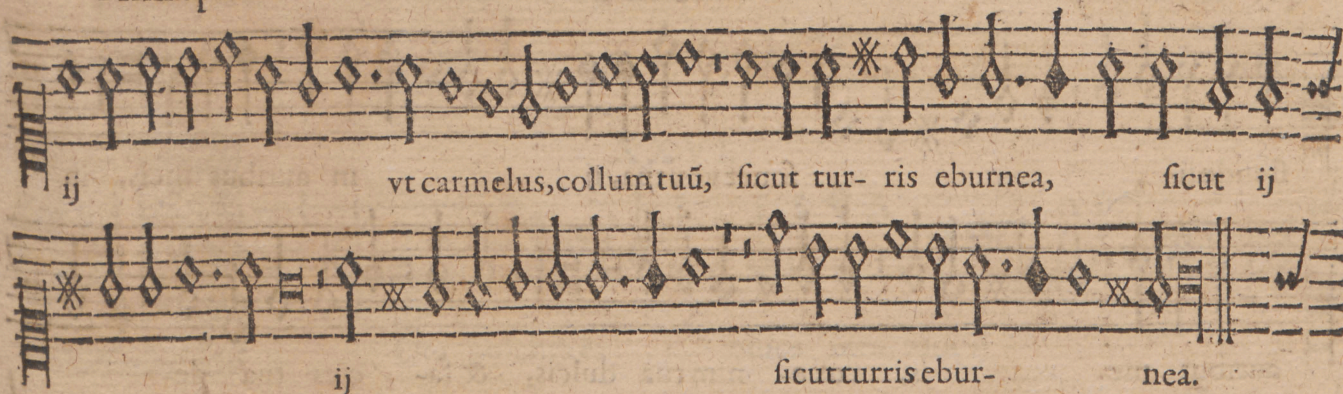 ij vt carmelus, collum tuū, ſicut tur- ris eburnea, ſicut ij
ij ſicut turris ebur- nea.